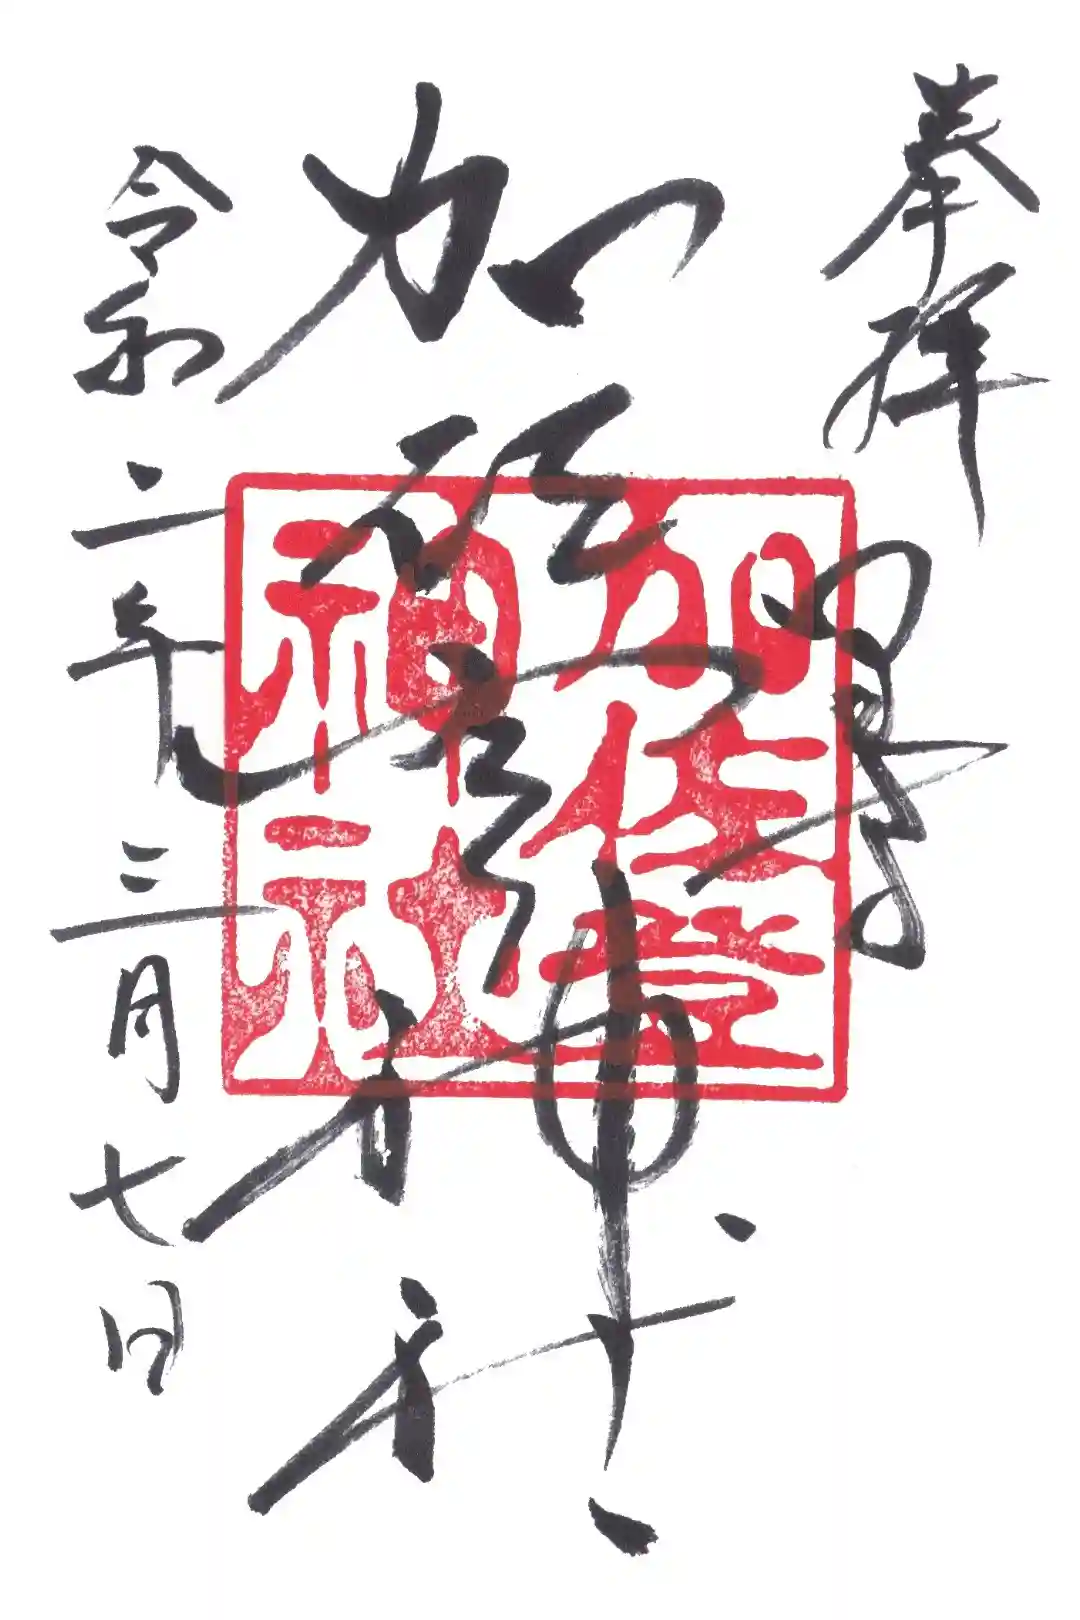 奉拝
加佐登神社
令和二年三月七日
加佐登
神社